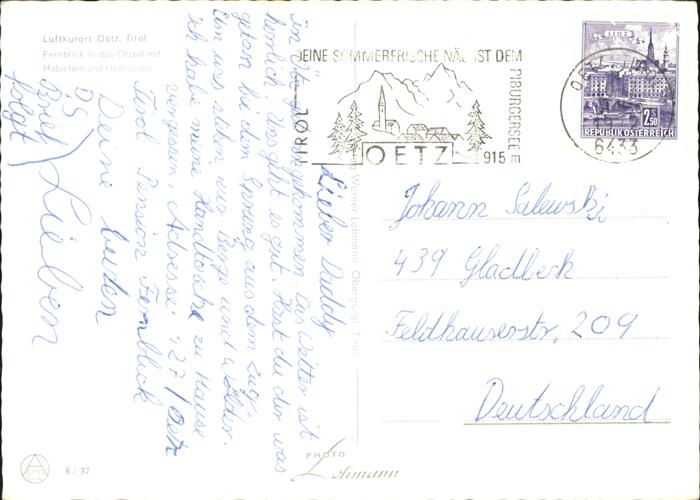 Luftkurort Oetz, Tirol
Fernblick in das Ötztal mit
Habichen und Umhausen
DEINE SOMMERFRISCHE NÄCHST DEM
PIBURGERSEE
TIROL
OETZ
915 m
LINZ
2.50
REPUBLIK ÖSTERREICH
OETZ
6433
Lieber Daddy
gut angekommen. Das Wetter ist
herrlich. Uns geht es gut. Hast du dir was
getan bei dem Sprung aus dem Zug?
Um uns sehen wir Berge und Wälder.
Ich habe meine Handtasche zu Hause
vergessen. Adresse: 27/Oetz
Tirol Pension Fernblick
Deine beiden
Lieben
(Brief
folgt)
Johann Salewski
439 Gladbeck
Feldhauserstr, 209
Deutschland
Werner Lohmann, Obergurgl, Tirol
PHOTO
Lohmann
6/37